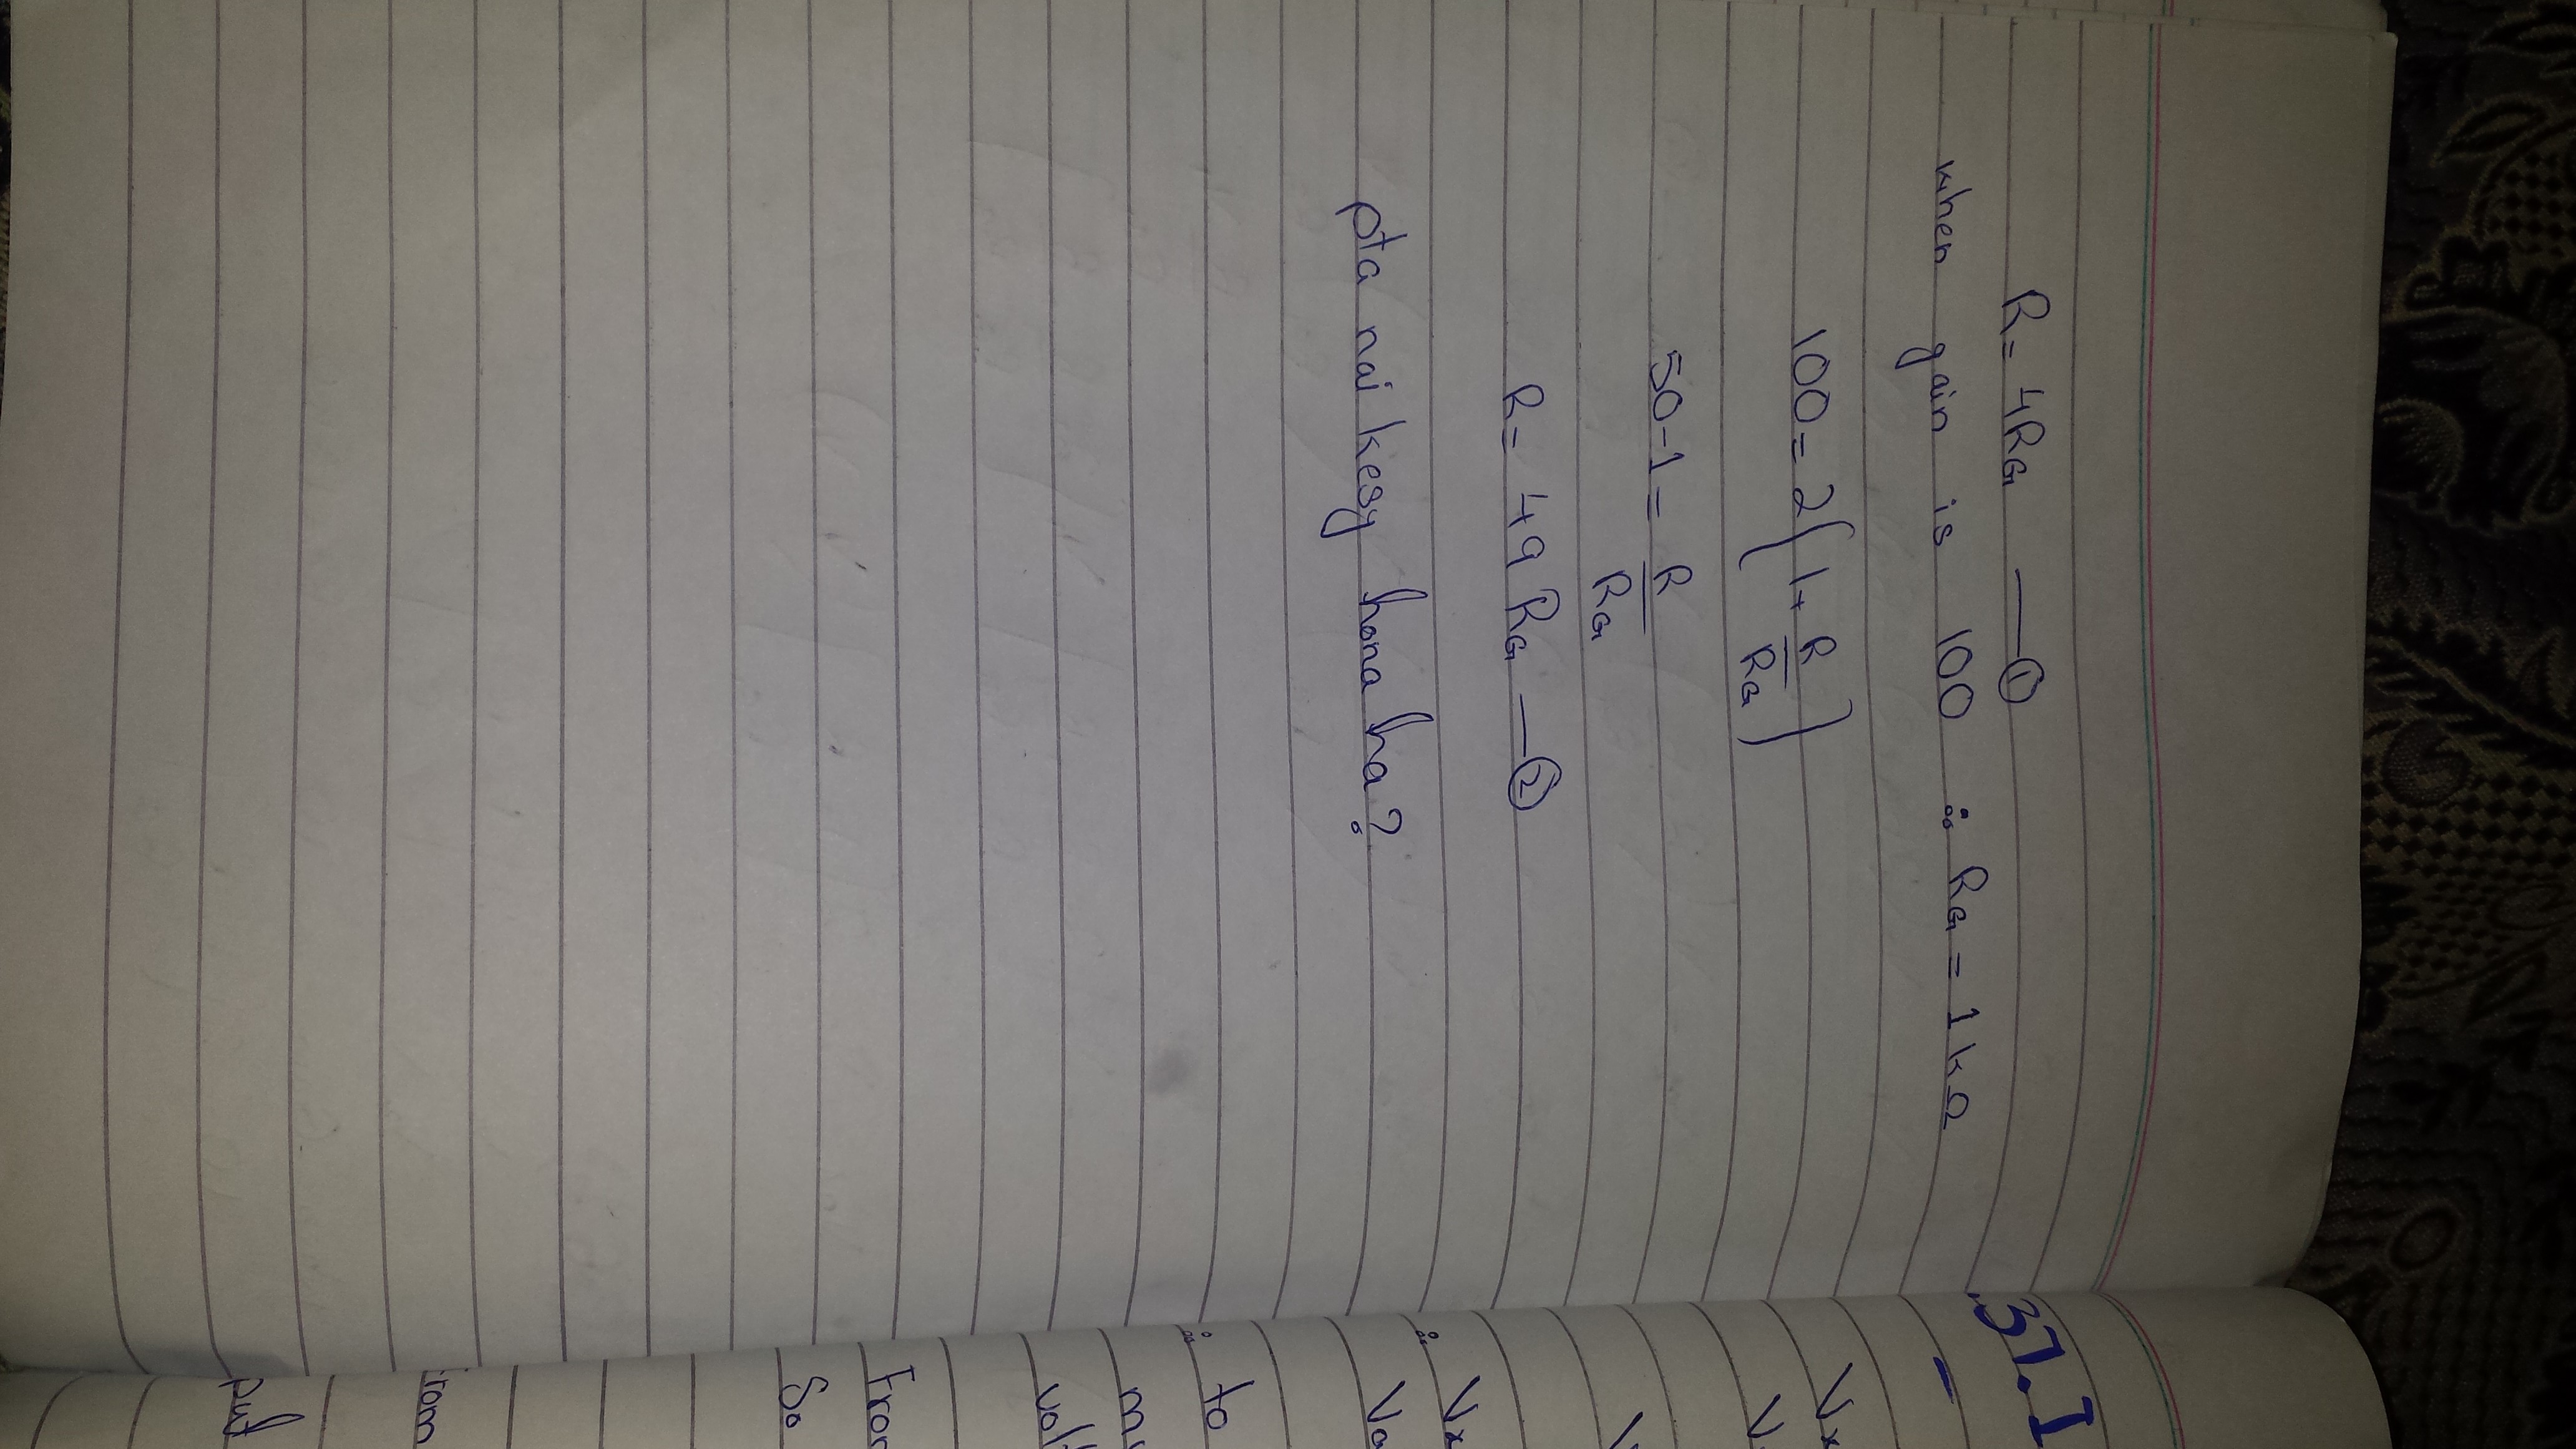 R = 4RG —①
when gain is 100 ∴ RG = 1 kΩ
100 = 2(1+ R/RG)
50-1 = R/RG
R = 49 RG —②
pta nai kesy hona ha?
37.I
Vx
∴ Vx
to
vol
Fron
So
put